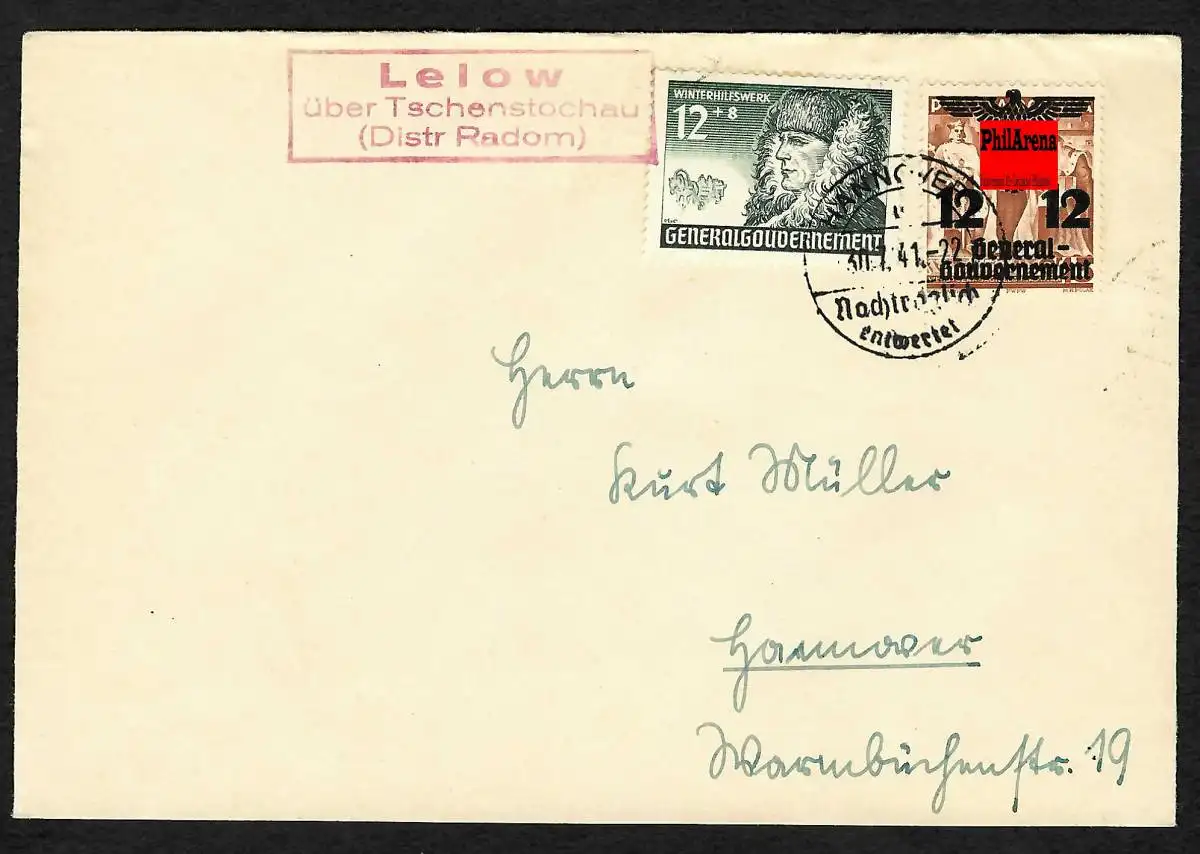 Lelow
über Tschenstochau
(Distr Radom)
WINTERHILFSWERK
12+8
GENERALGOUVERNEMENT
PhilArena
12 12
General-
Gouvernement
HANNOVER
41.-22
Nachträglich
entwertet
Herrn
Kurt Müller
Hannover
Warmbüchenstr. 19